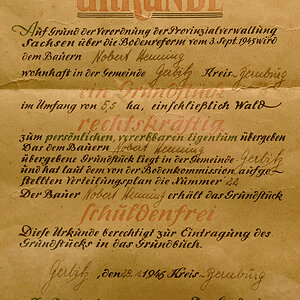 URKUNDE
Auf Grund der Verordnung der Provinzialverwaltung
Sachsen über die Bodenreform vom 3. Sept. 1945 wird
dem Bauern Robert Henning
wohnhaft in der Gemeinde Gerbitz Kreis Bernburg
ein Grundstück
im Umfang von 5,5 ha, einschließlich Wald
rechtskräftig
zum persönlichen, vererbbaren Eigentum übergeben
Das dem Bauern Robert Henning
übergebene Grundstück liegt in der Gemeinde Gerbitz
und hat laut dem von der Bodenkommission aufge-
stellten Verteilungsplan die Nummer 22
Der Bauer Robert Henning erhält das Grundstück
schuldenfrei
Diese Urkunde berechtigt zur Eintragung des
Grundstücks in das Grundbuch.
Gerbitz, den 1945 Kreis Bernburg